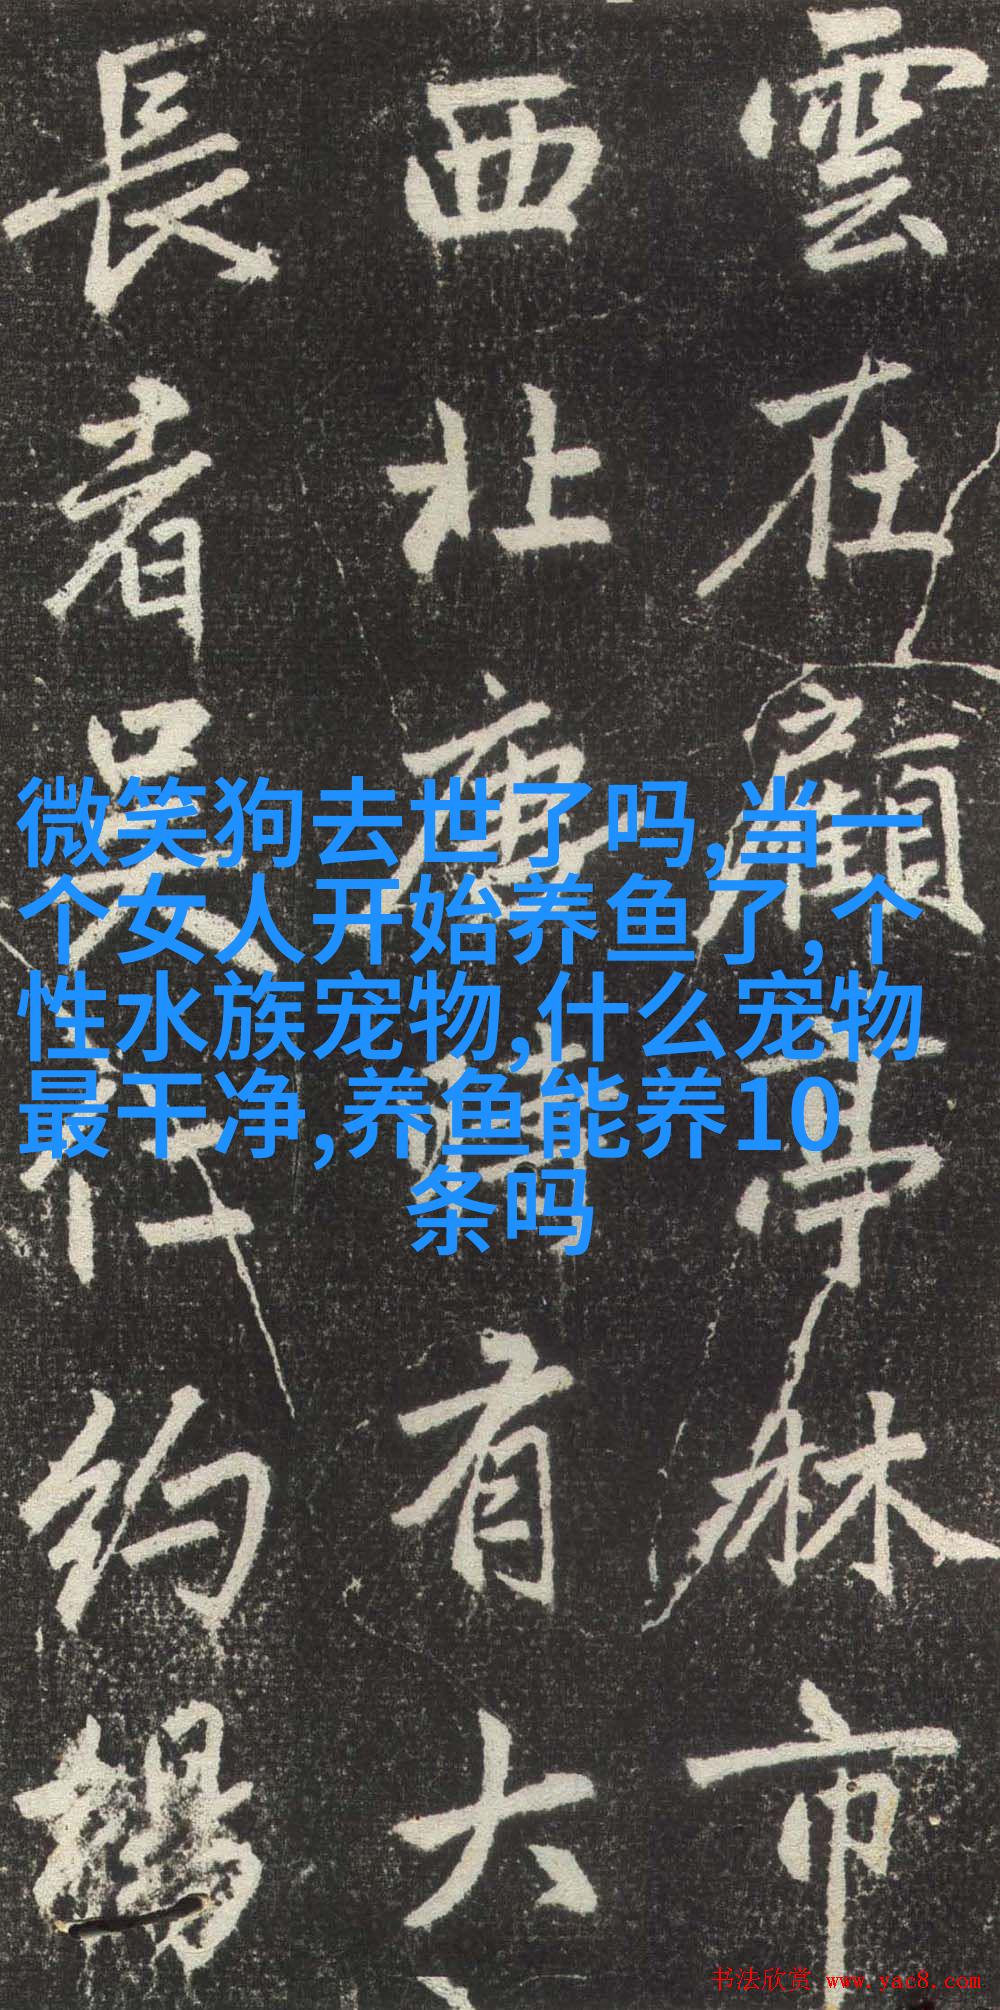 雲在顧亭林市
西北廣
有大
長者吳
約楊
微笑狗去世了吗,当一
个女人开始养鱼了,个
性水族宠物,什么宠物
最干净,养鱼能养10
条吗
书法欣赏 www.yac8.com